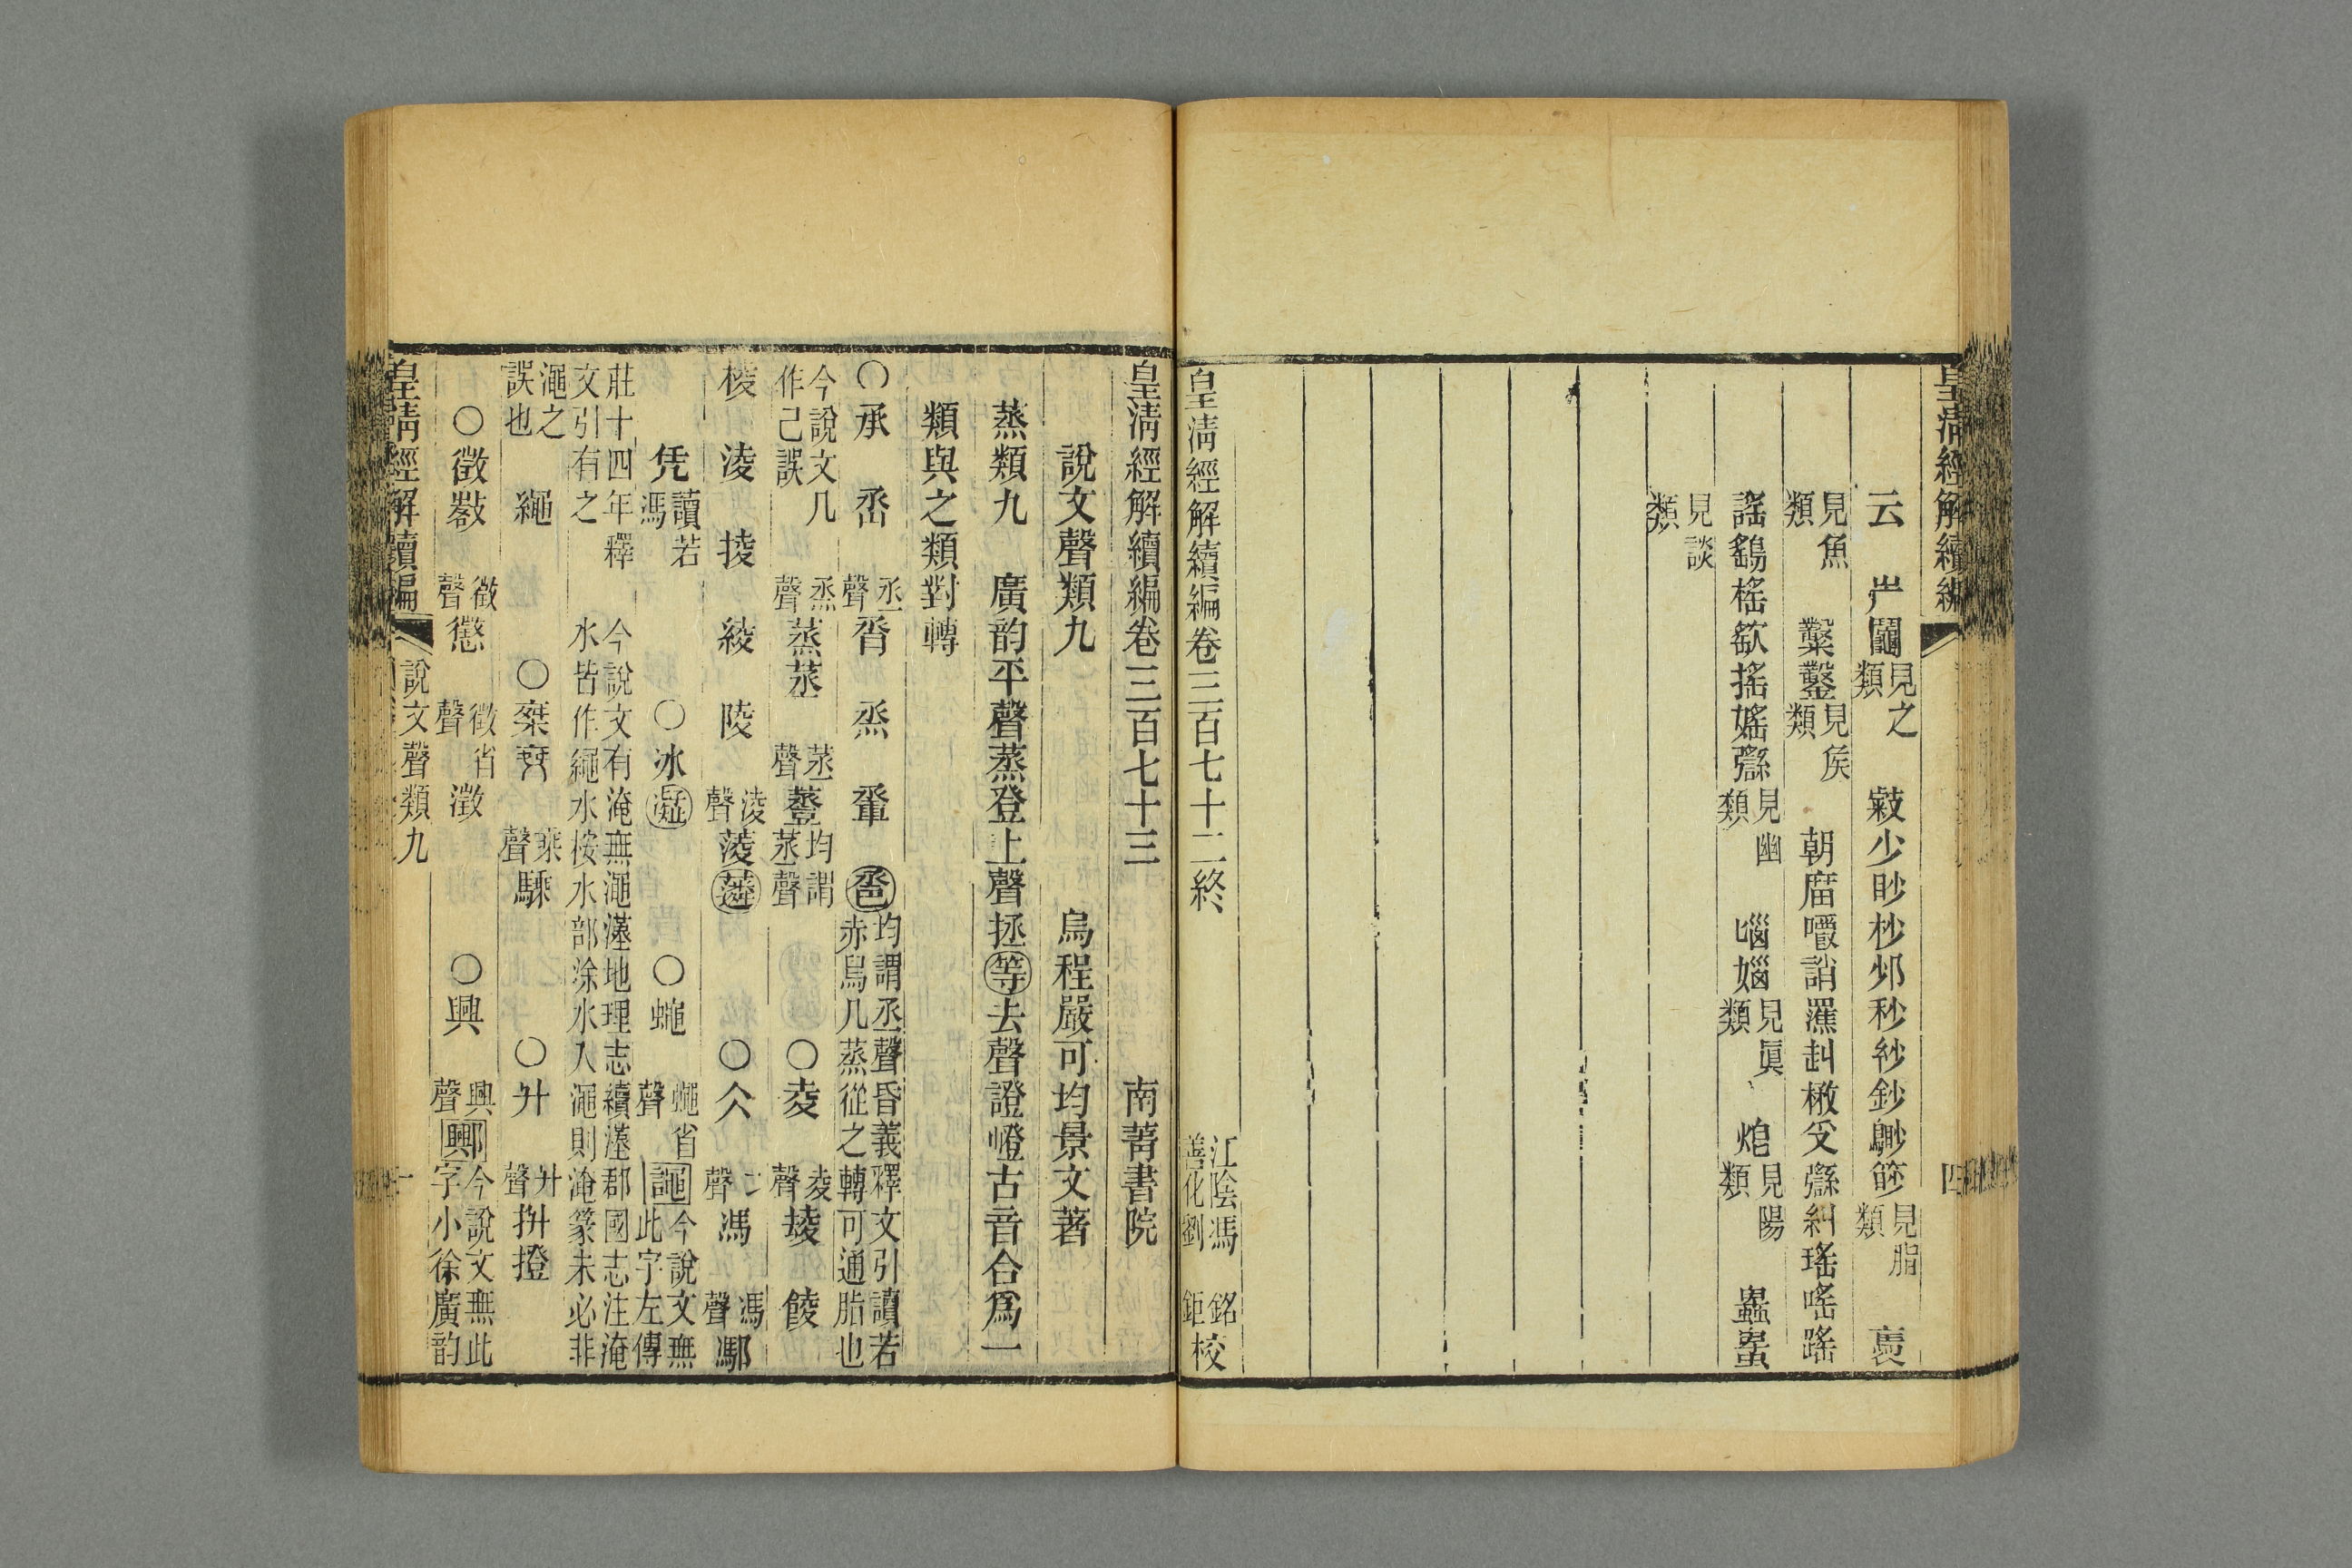 皇淸經解續編
云 屵 鬮見之類 敹少眇杪䏚秒紗鈔鼽䈃見脂類 褭
見魚類 糳鑿見侯類 朝庿嚼誚㶟赳檄受繇糾瑤嗂踰
謠鷂榣欲搖媱繇見幽類 㛴㛴見眞類 炮見陽類 蟁蟁
見談類
皇淸經解續編卷三百七十二終 江陰馮 銘 善化劉 鉅校
皇淸經解續編卷三百七十三 南菁書院
說文聲類九 烏程嚴可均景文著
蒸類九 廣韵平聲蒸登上聲拯等去聲證嶝古音合爲一
類與之類對轉
○承 巹 丞聲脀 烝 䡝 巹均謂丞聲昏義釋文引讀若赤舄几蒸從之轉可通脂也
今說文几作己誤 烝聲蒸菬 菬聲䔲均謂菬聲 ○夌 夌聲堎 餕
棱 淩 掕 綾 陵 淩聲蔆䔖 ○仌 仌聲馮 馮聲鄸
凭讀若馮 ○冰凝 ○蠅 蠅省聲譝今說文無此字左傳
莊十四年釋文引有之 今說文有淹無澠漢地理志續漢郡國志注淹水皆作繩水桉水部涂水入澠則淹篆未必非
澠之誤也 繩 ○椉𠅞 椉聲騬 ○廾 廾聲拼撜
○徵𢾷 徵聲懲 徵省聲澂 ○興 興聲鄭今說文無此字小徐廣韵
皇淸經解續編 說文聲類九 一